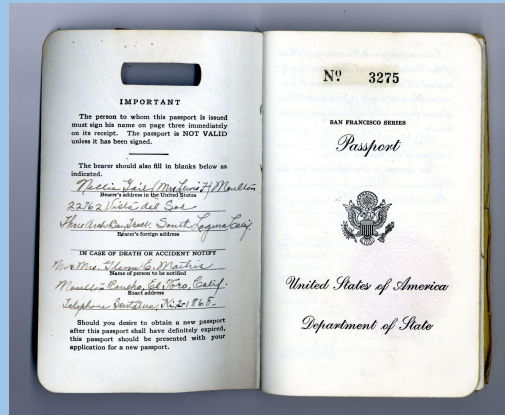 IMPORTANT
The person to whom this passport is issued
must sign his name on page three immediately
on its receipt. The passport is NOT VALID
unless it has been signed.
The bearer should also fill in blanks below as
indicated.
Nellie Gail (Mrs Lewis F. Moulton
Bearer's address in the United States
22762 Vista del Sol
Three Arch Bay Tract. South Laguna, Calif.
Bearer's foreign address
IN CASE OF DEATH OR ACCIDENT NOTIFY
Mr & Mrs. Glenn E. Mathis
Name of person to be notified
Moulton Rancho, El Toro, Calif.
Exact address
Telephone Santa Ana, Ki-2-1868-
Should you desire to obtain a new passport
after this passport shall have definitely expired,
this passport should be presented with your
application for a new passport.
Nº 3275
SAN FRANCISCO SERIES
Passport
United States of America
Department of State